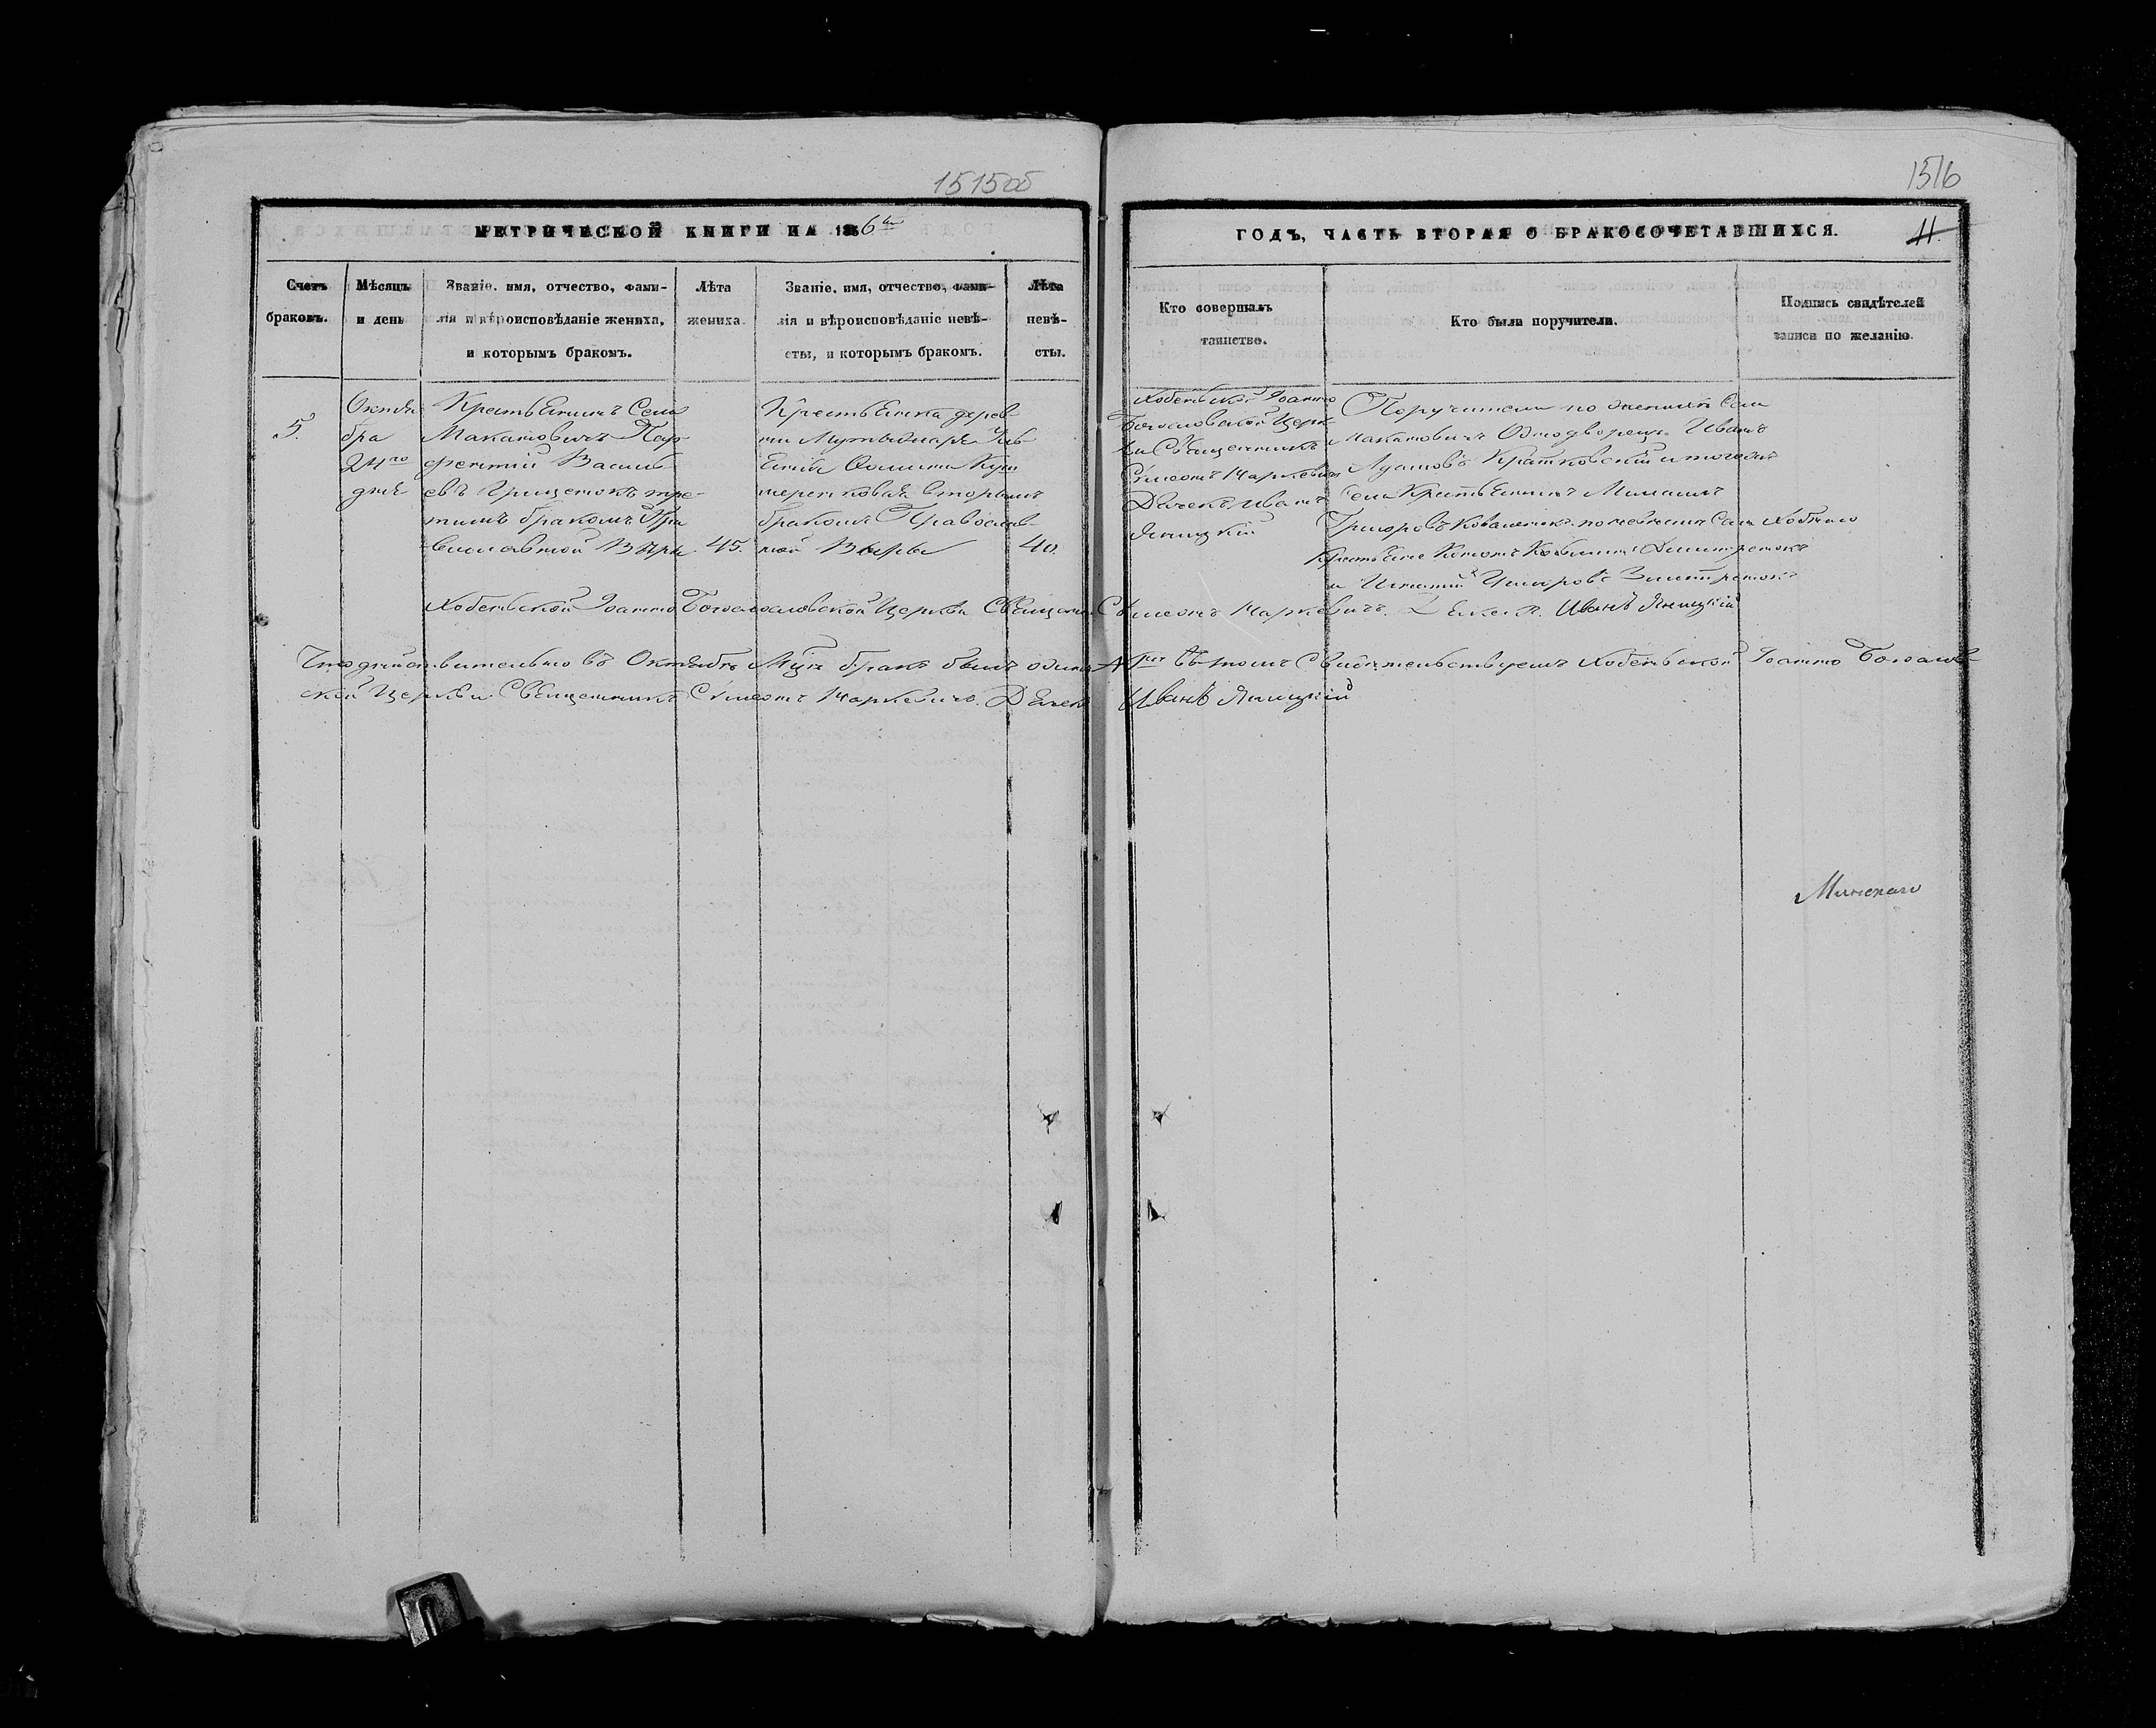 1515об
1516
МЕТРИЧЕСКОЙ КНИГИ НА 1866й
ГОДЪ, ЧАСТЬ ВТОРАЯ О БРАКОСОЧЕТАВШИХСЯ.
11
Счетъ браковъ.
Мѣсяцъ и день
Званіе, имя, отчество, фами-
лія и вѣроисповѣданіе жениха,
и которымъ бракомъ.
Лѣта
жениха.
Званіе, имя, отчество, фами-
лія и вѣроисповѣданіе невѣ-
сты, и которымъ бракомъ.
Лѣта
невѣ-
сты.
Кто совершалъ
таинство.
Кто были поручители.
Подпись свидѣтелей
записи по желанію.
5.
Октя
бра
24го
дня
Крестьянинъ Села
Макановичъ Пар-
фентій Василь
евъ Грищенокъ тре-
тимъ бракомъ Пра
вославной Вѣры
45.
Крестьянка дерев-
ни
бракомъ Православ-
ной Вѣры
40.
Хобенской Іоанно
Богословской Церк
ви Священникъ
Сѵмеонъ Маркевич
Дьячекъ Иванъ
Яницкій
Поручители по женихѣ Села
Макановичъ Однодворецъ Иванъ
Адамовъ Кратковскій и тогожъ
Села Крестьянинъ
Григоровъ по невѣстѣ Села Хобного
Крестьяне
и Игнатій
Хобенской Іоанно Богословской Церкви Священ. Сѵмеонъ Маркевичъ. Дьячекъ Иванъ Яницкій
Что дѣйствительно въ Октябрѣ Мцѣ бракъ былъ одинъ № 1й въ томъ свидѣтельствуемъ Хобенской Іоанно Богослов-
ской Церкви Священникъ Сѵмеонъ Маркевичъ. Дьячекъ Иванъ Яницкій
Минскаго